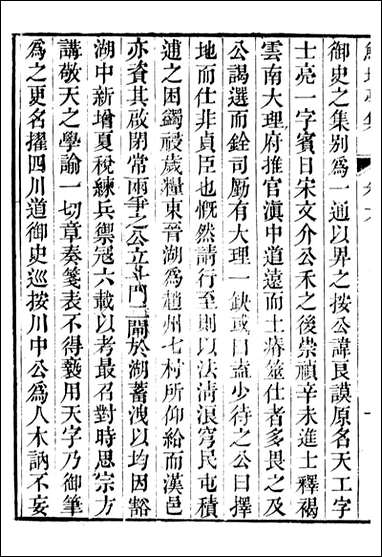 御史之集別爲一通以畀之按公諱良謨原名天工字
士亮一字賓日宋文介公禾之後崇禎辛未進士釋褐
雲南大理府推官滇中道遠而土瘠筮仕者多畏之及
公謁選而銓司勵有大理一缺或曰盍少待之公曰擇
地而仕非貞臣也慨然請行至則以法清浪穹民屯積
逋之困蠲祲歲糧東晉湖爲趙州七村所仰給而漢邑
亦資其啟閉常兩爭之公立斗門三閘於湖蓄洩以均因豁
湖中新增夏稅練兵禦寇六載以考最召對時思宗方
講敬天之學諭一切章奏箋表不得褻用天字乃御筆
爲之更名擢四川道御史巡按川中公爲人木訥不妄